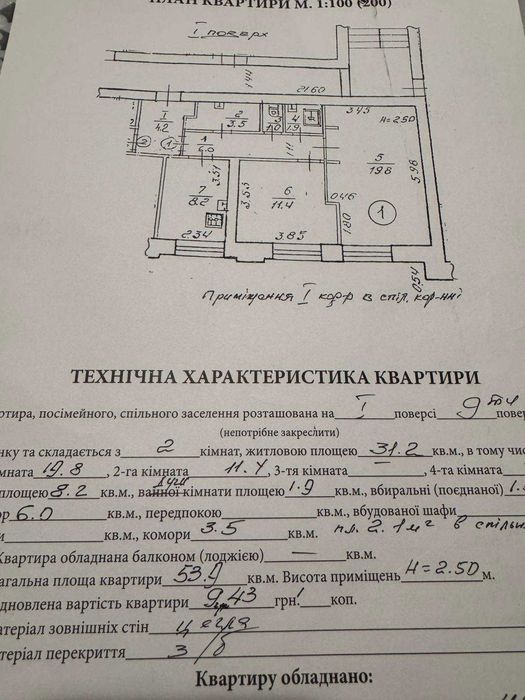 ПЛАН КВАРТИРИ М. 1:100 (200)
I поверх
1.44
21.60
I
4.2
2
3.5
3
1.0
4
1.9
3.45
H=2.50
2
1
1
6.0
1.11
5
19.8
5.98
7
8.2
3.51
3.53
6
11.4
0.46
1.80
1
2.34
3.85
0.54
Приміщення I кор-р в спіл. кор-нні
ТЕХНІЧНА ХАРАКТЕРИСТИКА КВАРТИРИ
ртира, посімейного, спільного заселення розташована на I поверсі 9ти повер
(непотрібне закреслити)
нку та складається з 2 кімнат, житловою площею 31.2 кв.м., в тому чис
мната 19.8, 2-га кімната 11.4, 3-тя кімната —, 4-та кімната
площею 8.2 кв.м., ванної душ кімнати площею 1.9 кв.м., вбиральні (поєднаної) 1.
ор 6.0 кв.м., передпокою кв.м., вбудованої шафи
и кв.м., комори 3.5 кв.м. пл. 2.1м² в спільн
Квартира обладнана балконом (лоджією) — кв.м.
агальна площа квартири 53.9 кв.м. Висота приміщень H=2.50 м.
дновлена вартість квартири 943 грн. коп.
атеріал зовнішніх стін цегла
теріал перекриття з/б
Квартиру обладнано: